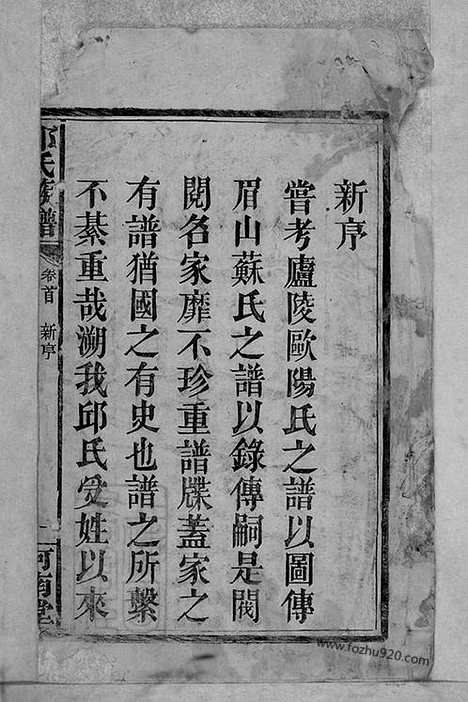 新序
嘗考廬陵歐陽氏之譜以圖傳
眉山蘇氏之譜以錄傳嗣是閥
閱名家靡不珍重譜牒蓋家之
有譜猶國之有史也譜之所繫
不綦重哉溯我邱氏受姓以來
邱氏族譜
卷首
新序
一
河南堂
www.fozhu920.com